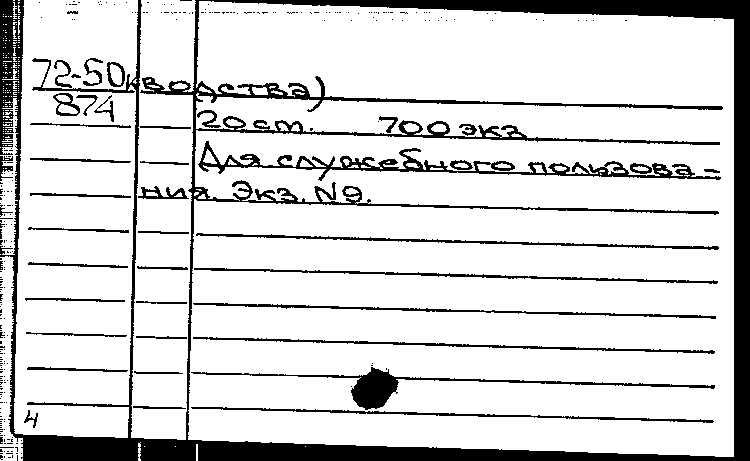 72-50
874
ководства)
20 ст. 700 экз
Для служебного пользова-
ния. Экз. №.
4